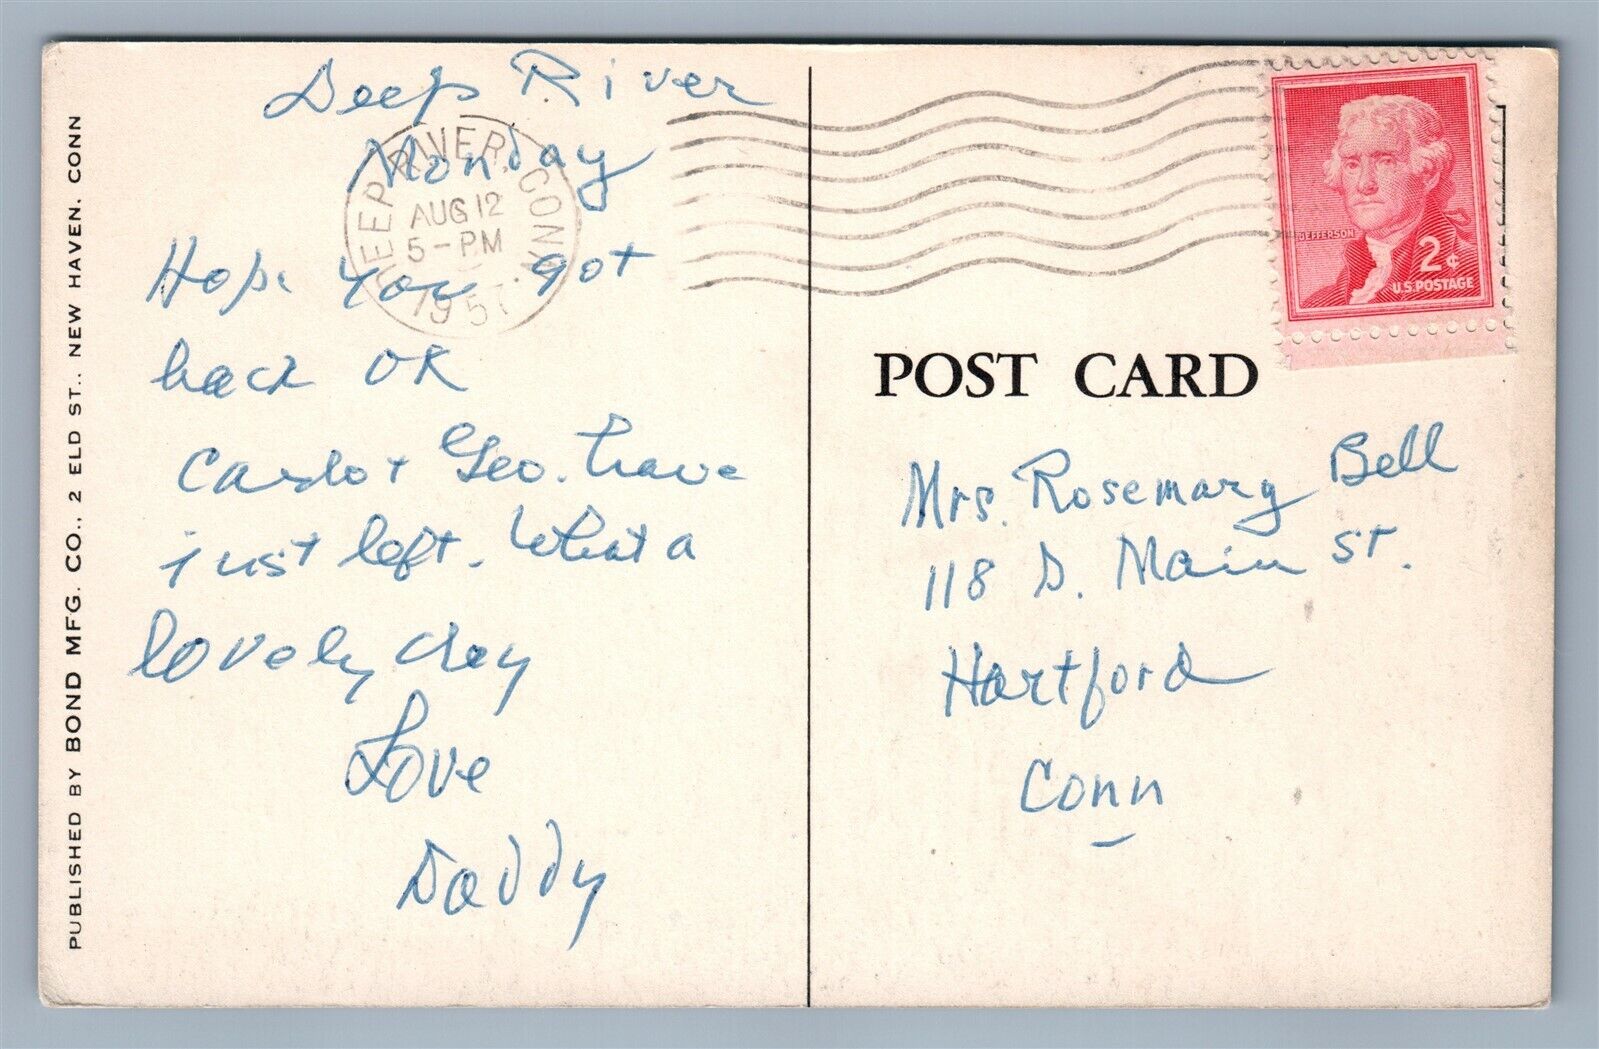 PUBLISHED BY BOND MFG. CO., 2 ELD ST., NEW HAVEN, CONN
Deep River
Monday
Hope you got
back OK
Carlo + Geo. have
just left. What a
lovely day
Love
Daddy
DEEP RIVER, CONN.
AUG 12
5-PM
1957
JEFFERSON
2¢
U.S. POSTAGE
POST CARD
Mrs. Rosemary Bell
118 S. Main St.
Hartford
Conn